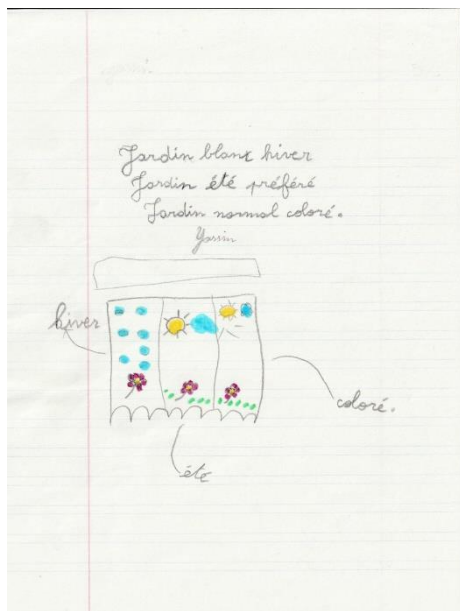 Jardin blanc hiver
Jardin été préféré
Jardin normal coloré.
Yassin
hiver
coloré.
été